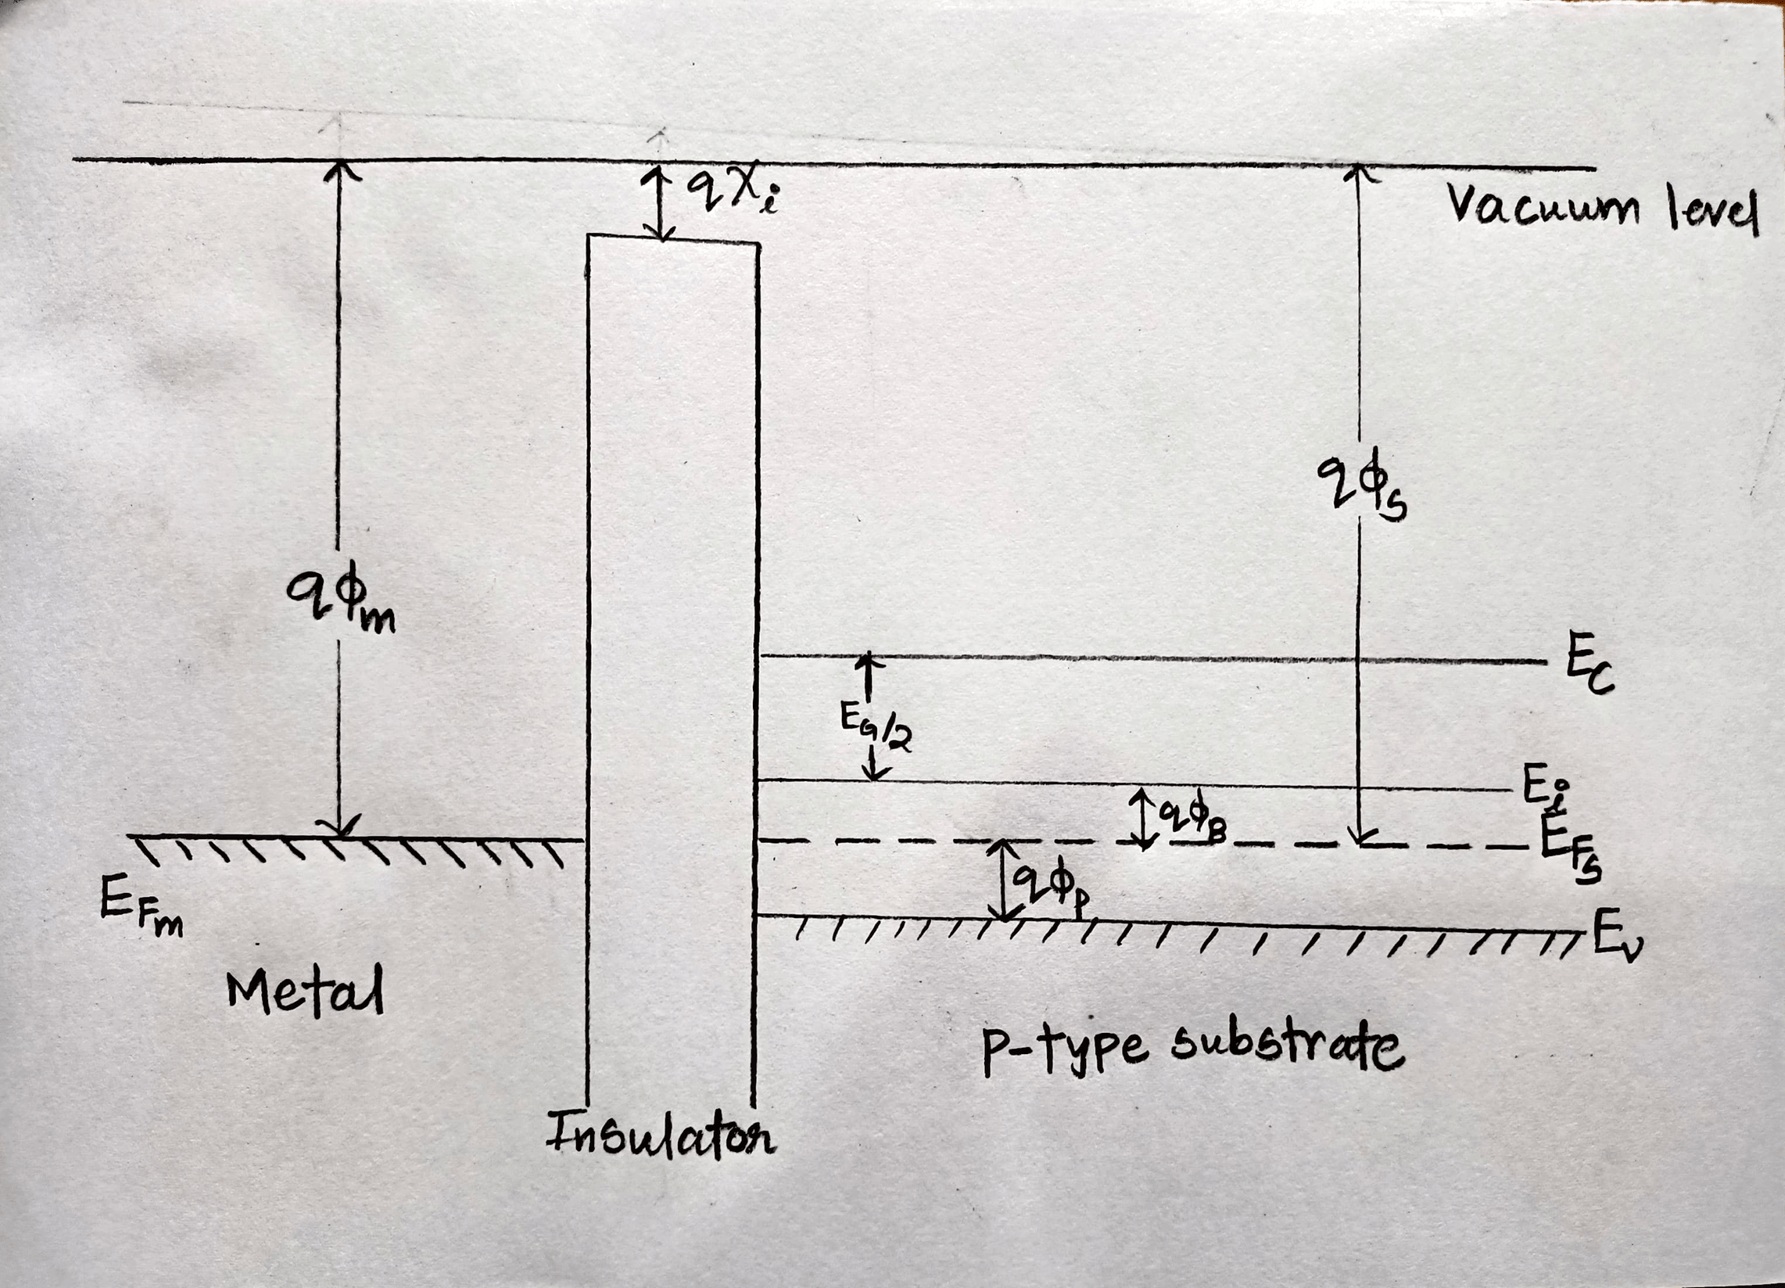 qχᵢ
Vacuum level
qϕₛ
qϕₘ
E_C
E_G/2
Eᵢ
qϕ_B
E_Fₛ
qϕₚ
E_Fₘ
Eᵥ
Metal
P-type substrate
Insulator